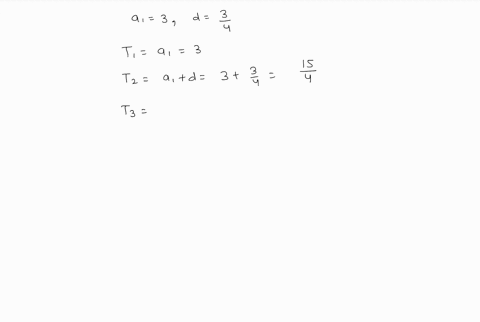 a₁ = 3, d = 3/4
T₁ = a₁ = 3
T₂ = a₁ + d = 3 + 3/4 = 15/4
T₃ =